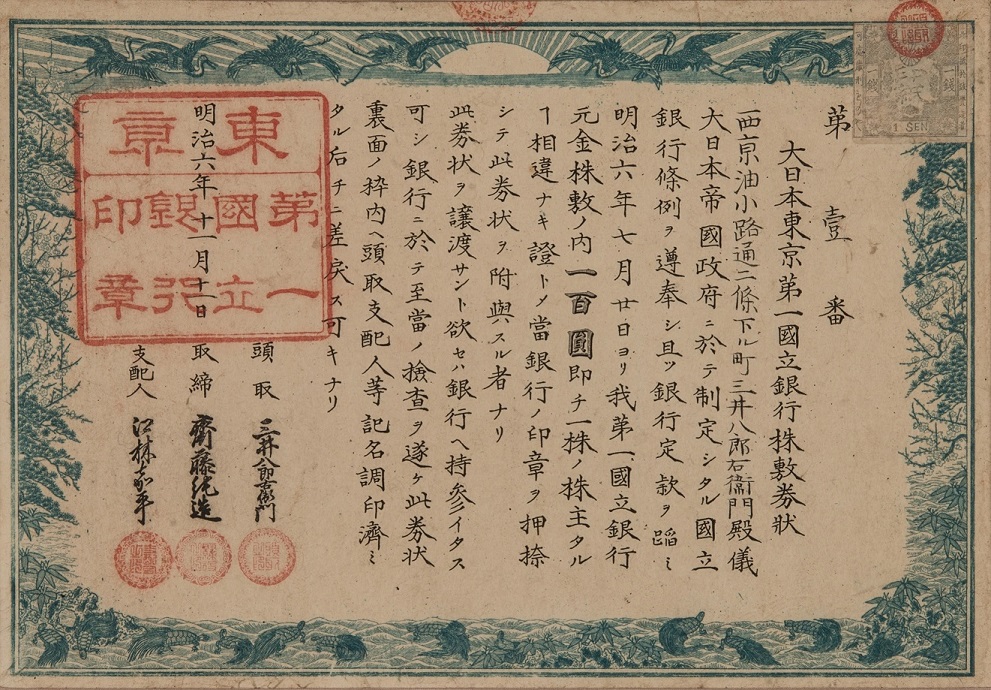 第壹番
大日本東京第一國立銀行株敷券狀
西京油小路通二條下ル町三井八郎右衞門殿儀
大日本帝國政府ニ於テ制定シタル國立
銀行條例ヲ遵奉シ且ツ銀行定款ヲ蹈ミ
明治六年七月廿日ヨリ我第一國立銀行
元金株敷ノ内一百圓即チ一株ノ株主タル
ヿ相違ナキ證トメ當銀行ノ印章ヲ押捺
シテ此券狀ヲ附與スル者ナリ
此券狀ヲ讓渡サント欲セハ銀行ヘ持參イタス
可シ銀行ニ於テ至當ノ撿查ヲ遂ケ此券狀
裏面ノ枠内ヘ頭取支配人等記名調印濟ミ
タル后チニ差戻ス可キナリ
明治六年十一月十一日
頭取 三井八郎右衞門
取締 齋藤純造
支配人 江林嘉平
東京
第一
國立
銀行
印章
1 SEN
一錢
一錢